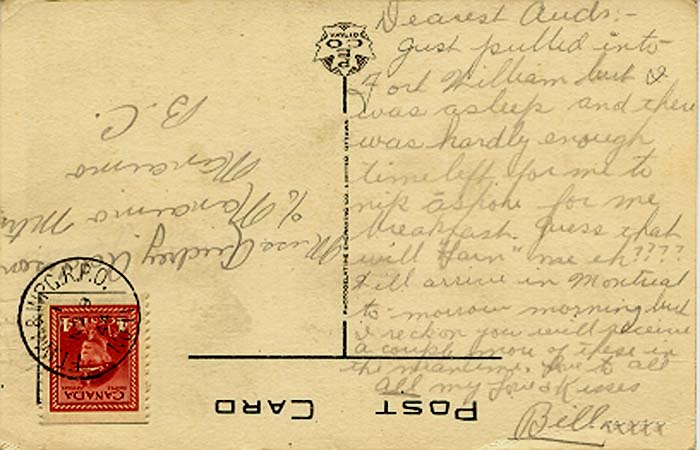 Dearest Auds:-
Just pulled into
Fort William but I
was asleep and there
was hardly enough
time left for me to
nip ashore for me
breakfast. Guess that
will "larn" me eh????
I'll arrive in Montreal
to-morrow morning but
I reckon you will receive
a couple more of these in
the meantime. Love to all
All my Love & Kisses
Bill xxxxx
POST CARD
PHOTOGELATINE ENGRAVING CO. LIMITED, OTTAWA
PECO
OTTAWA
Miss Audrey
c/o Nanaimo Mtrs
Nanaimo
B.C.
CANADA
4 4
R.P.O.